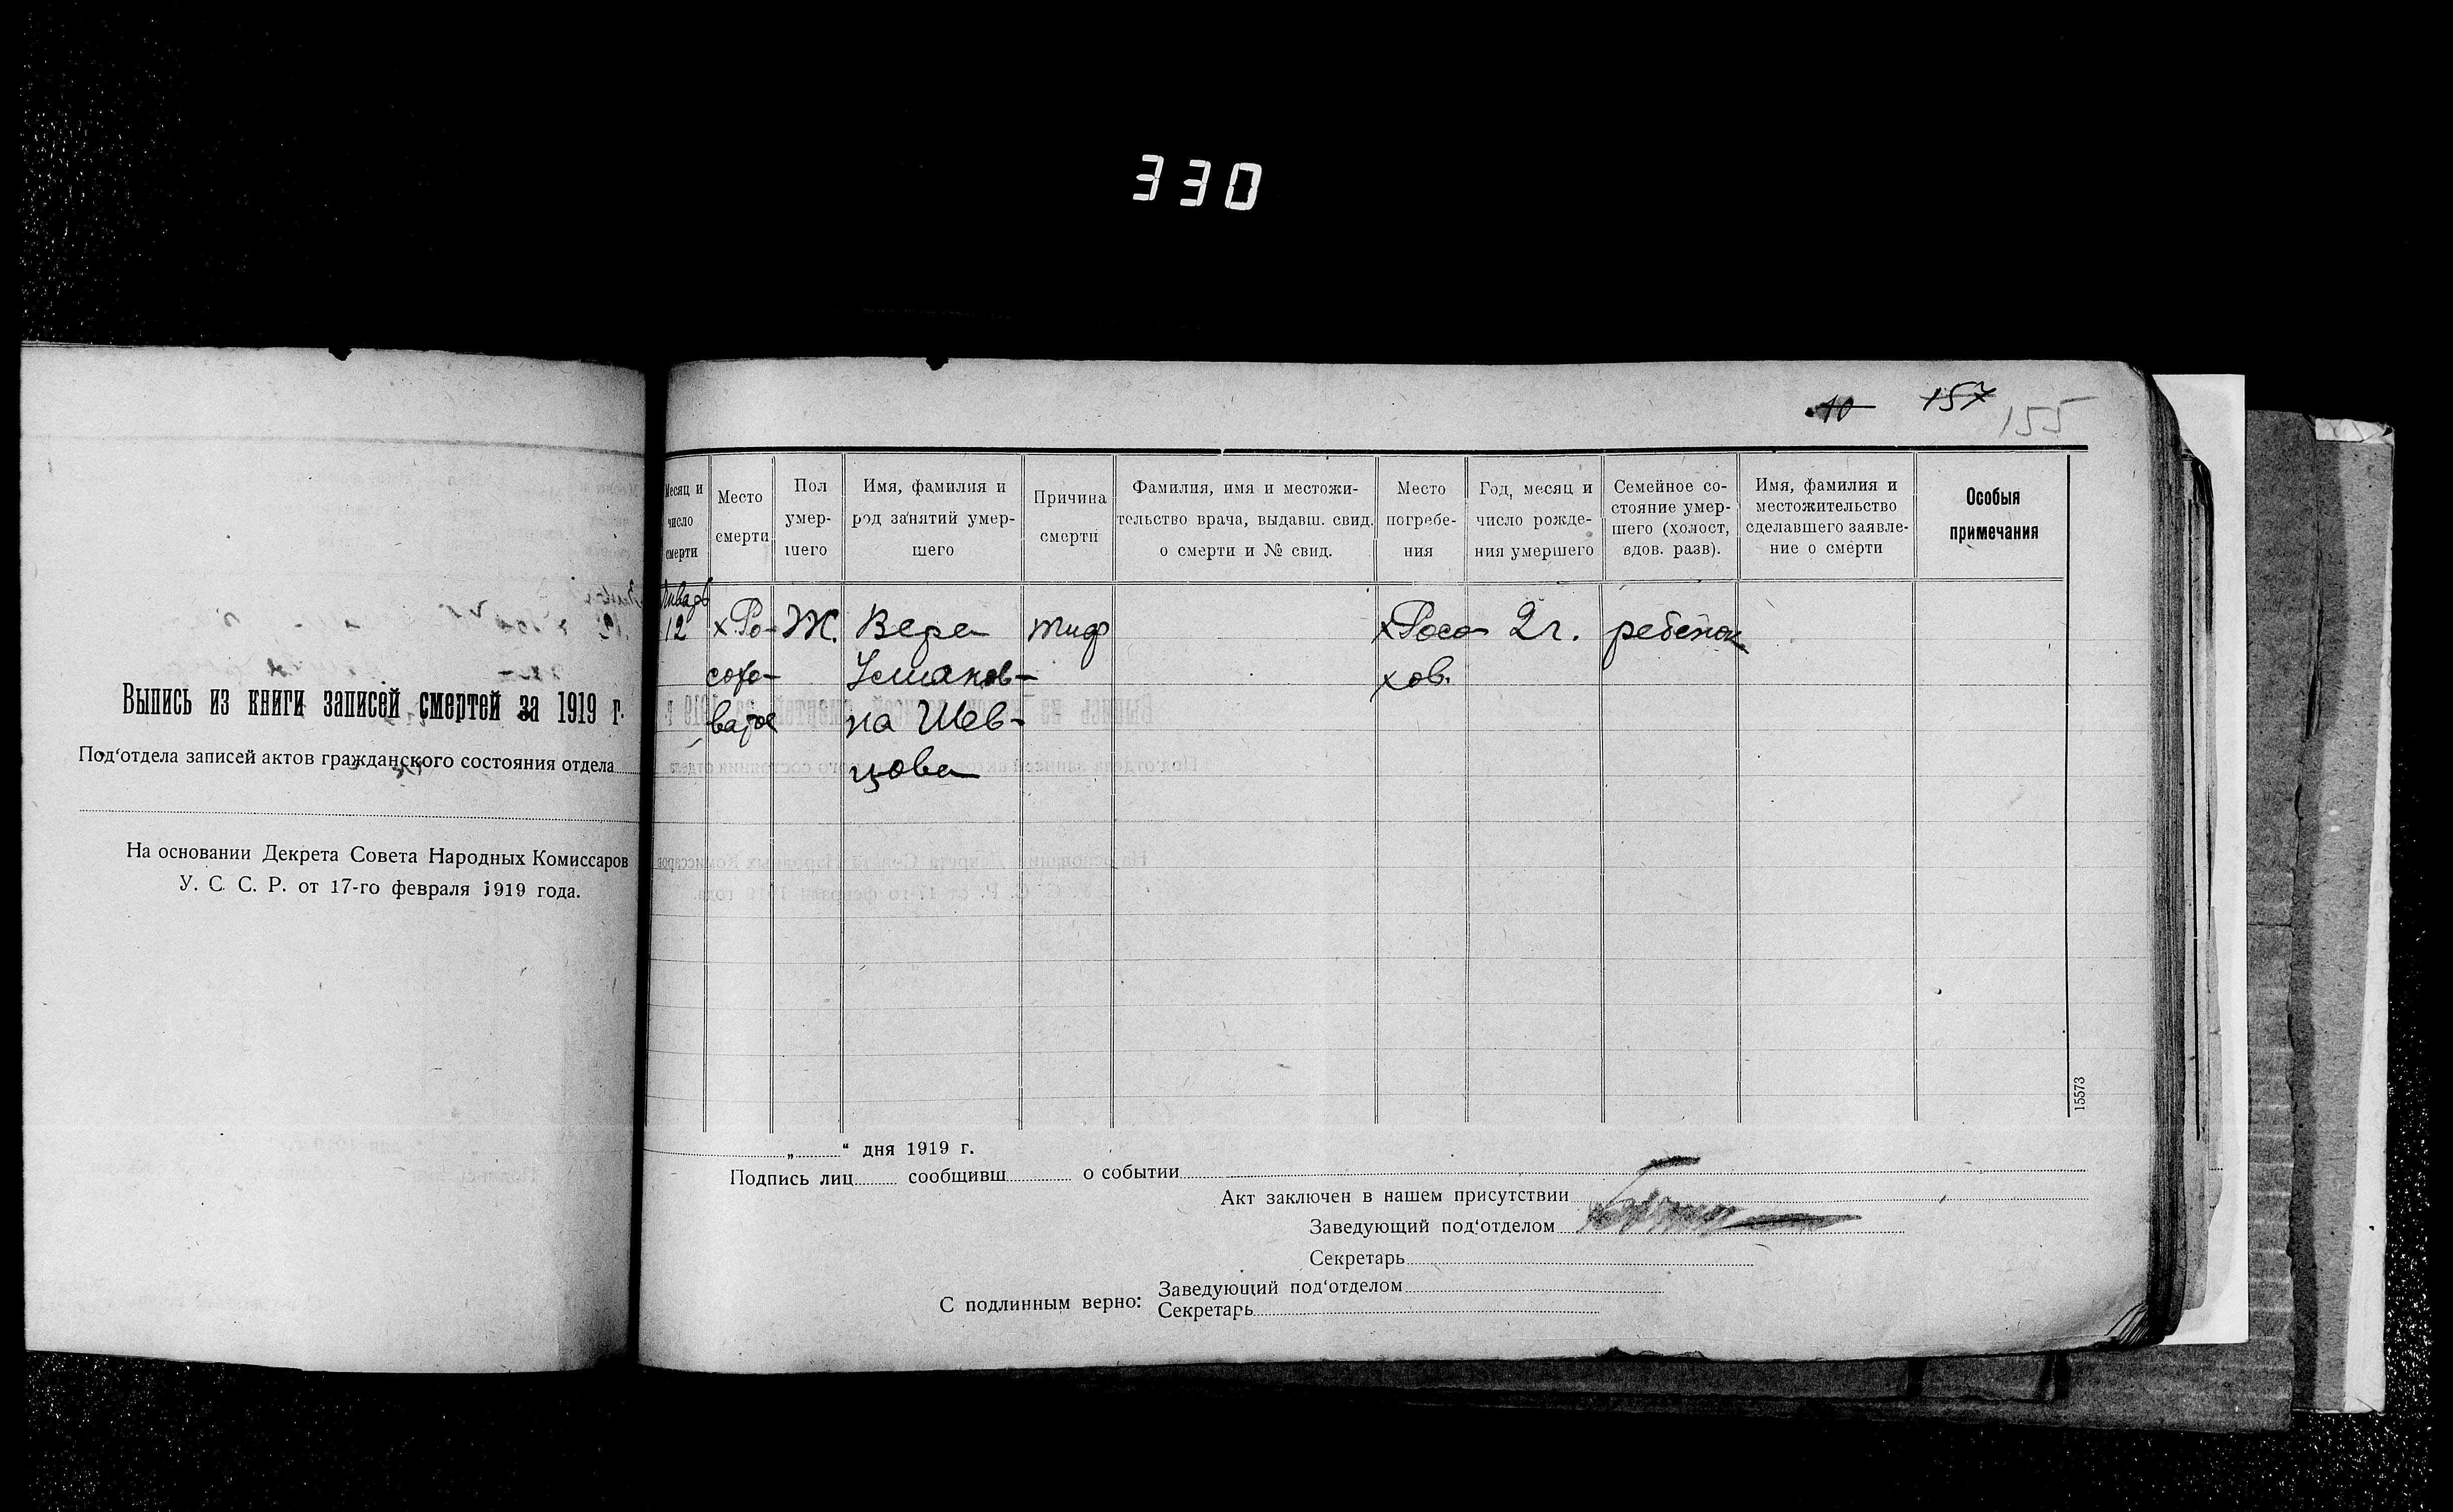 330
10 157 155
Выпись из книги записей смертей за 1919 г.
Под‘отдела записей актов гражданского состояния отдела
На основании Декрета Совета Народных Комиссаров
У. С. С. Р. от 17-го февраля 1919 года.
Месяц и число смерти
Место смерти
Пол умер-шего
Имя, фамилия и род занятий умер-шего
Причина смерти
Фамилия, имя и местожи-тельство врача, выдавш. свид. о смерти и № свид.
Место погребе-ния
Год, месяц и число рожде-ния умершего
Семейное со-стояние умер-шего (холост, вдов. разв).
Имя, фамилия и местожительство сделавшего заявле-ние о смерти
Особыя примечания
Январь
12 х Ро- Ж. Вера тиф хРосо- 2 г. ребенок
сохо- хов.
на Шев-
цова
15573
„ “ дня 1919 г.
Подпись лиц сообщивш о событии
Акт заключен в нашем присутствии
Заведующий под‘отделом
Секретарь
С подлинным верно: Заведующий под‘отделом
Секретарь